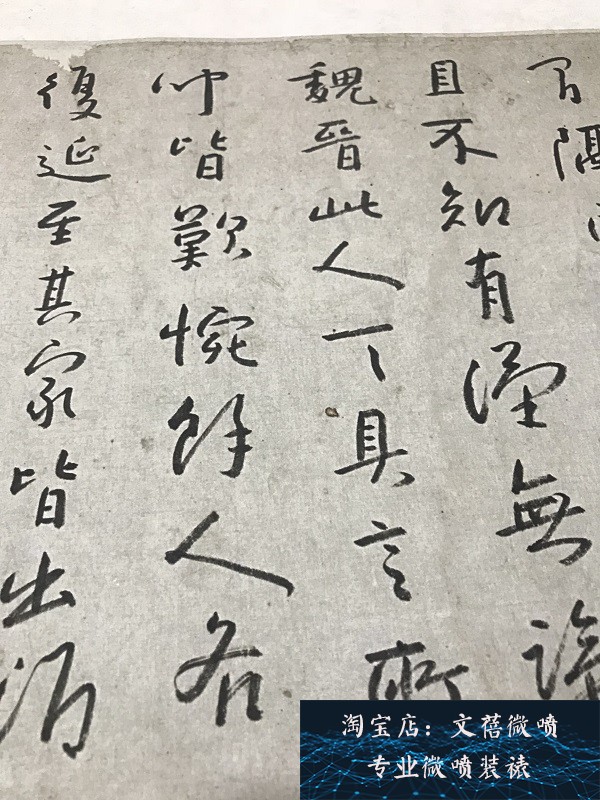 間隔問
且不知有漢無論
魏晉此人一一具言所
聞皆歎惋餘人各
復延至其家皆出酒
淘宝店：文蓓微喷
专业微喷装裱